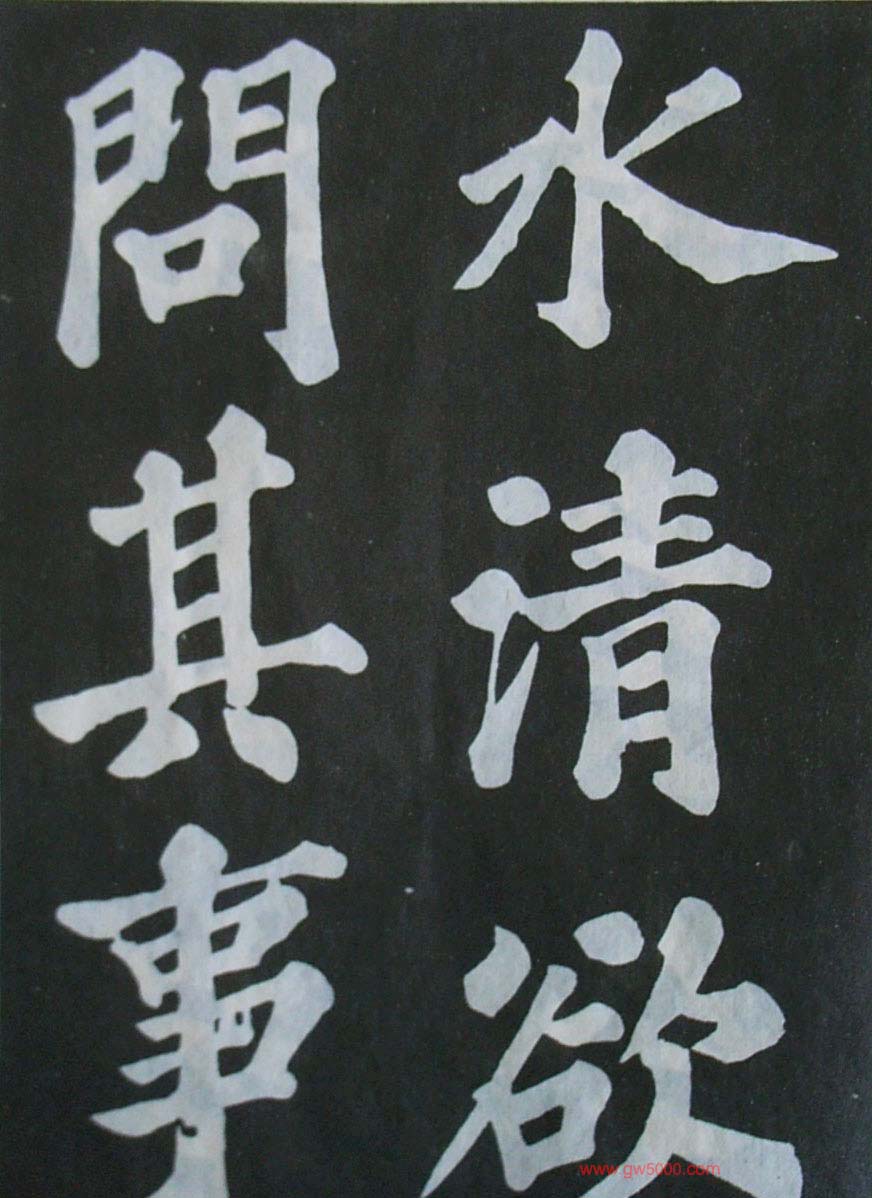 水清欲
問其事
www.gw5000.com